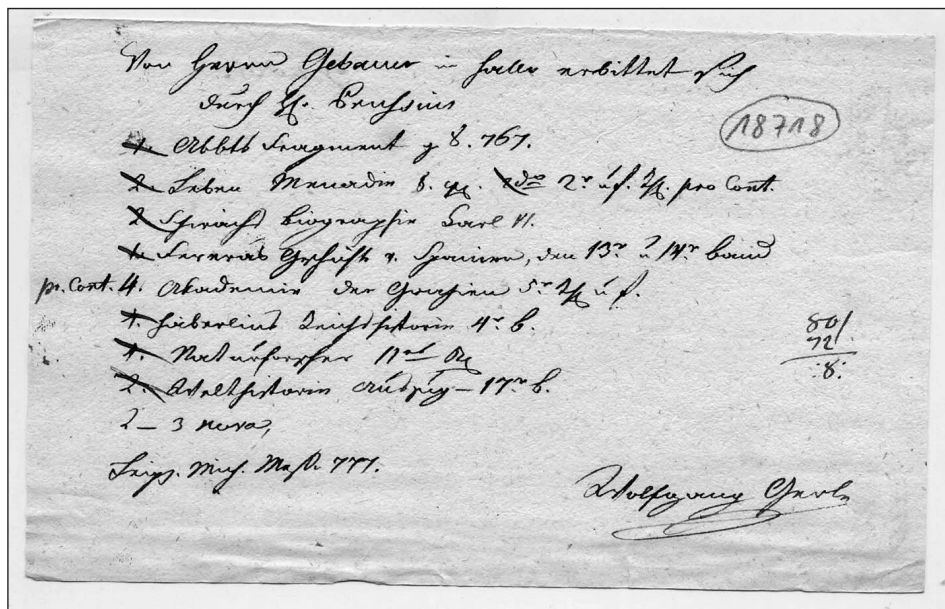 Von Herrn Gebauer in Halle erbittet sich
durch H.
18718
1. Abbts Fragment g 8. 767.
2. Leben 8. 2r u. f. pro Cont.
2 Schirachs Biographie Carl VI.
1. Ferreras Geschicht v. Spanien, den 13r u 14r Band
pr. Cont. 4. Akademie der Grazien 5r u f.
1. Häberlins Reichshistorie 4r B.
1. Naturforscher
2. Welthistorie Auszug 17r B.
2 - 3 nova,
80
72
:8:
Leipz. Mich. Meße 777.
Wolfgang Gerle